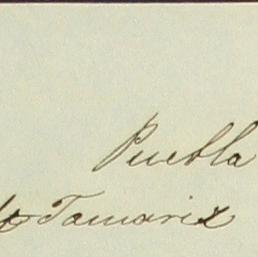 Puebla
Tamariz